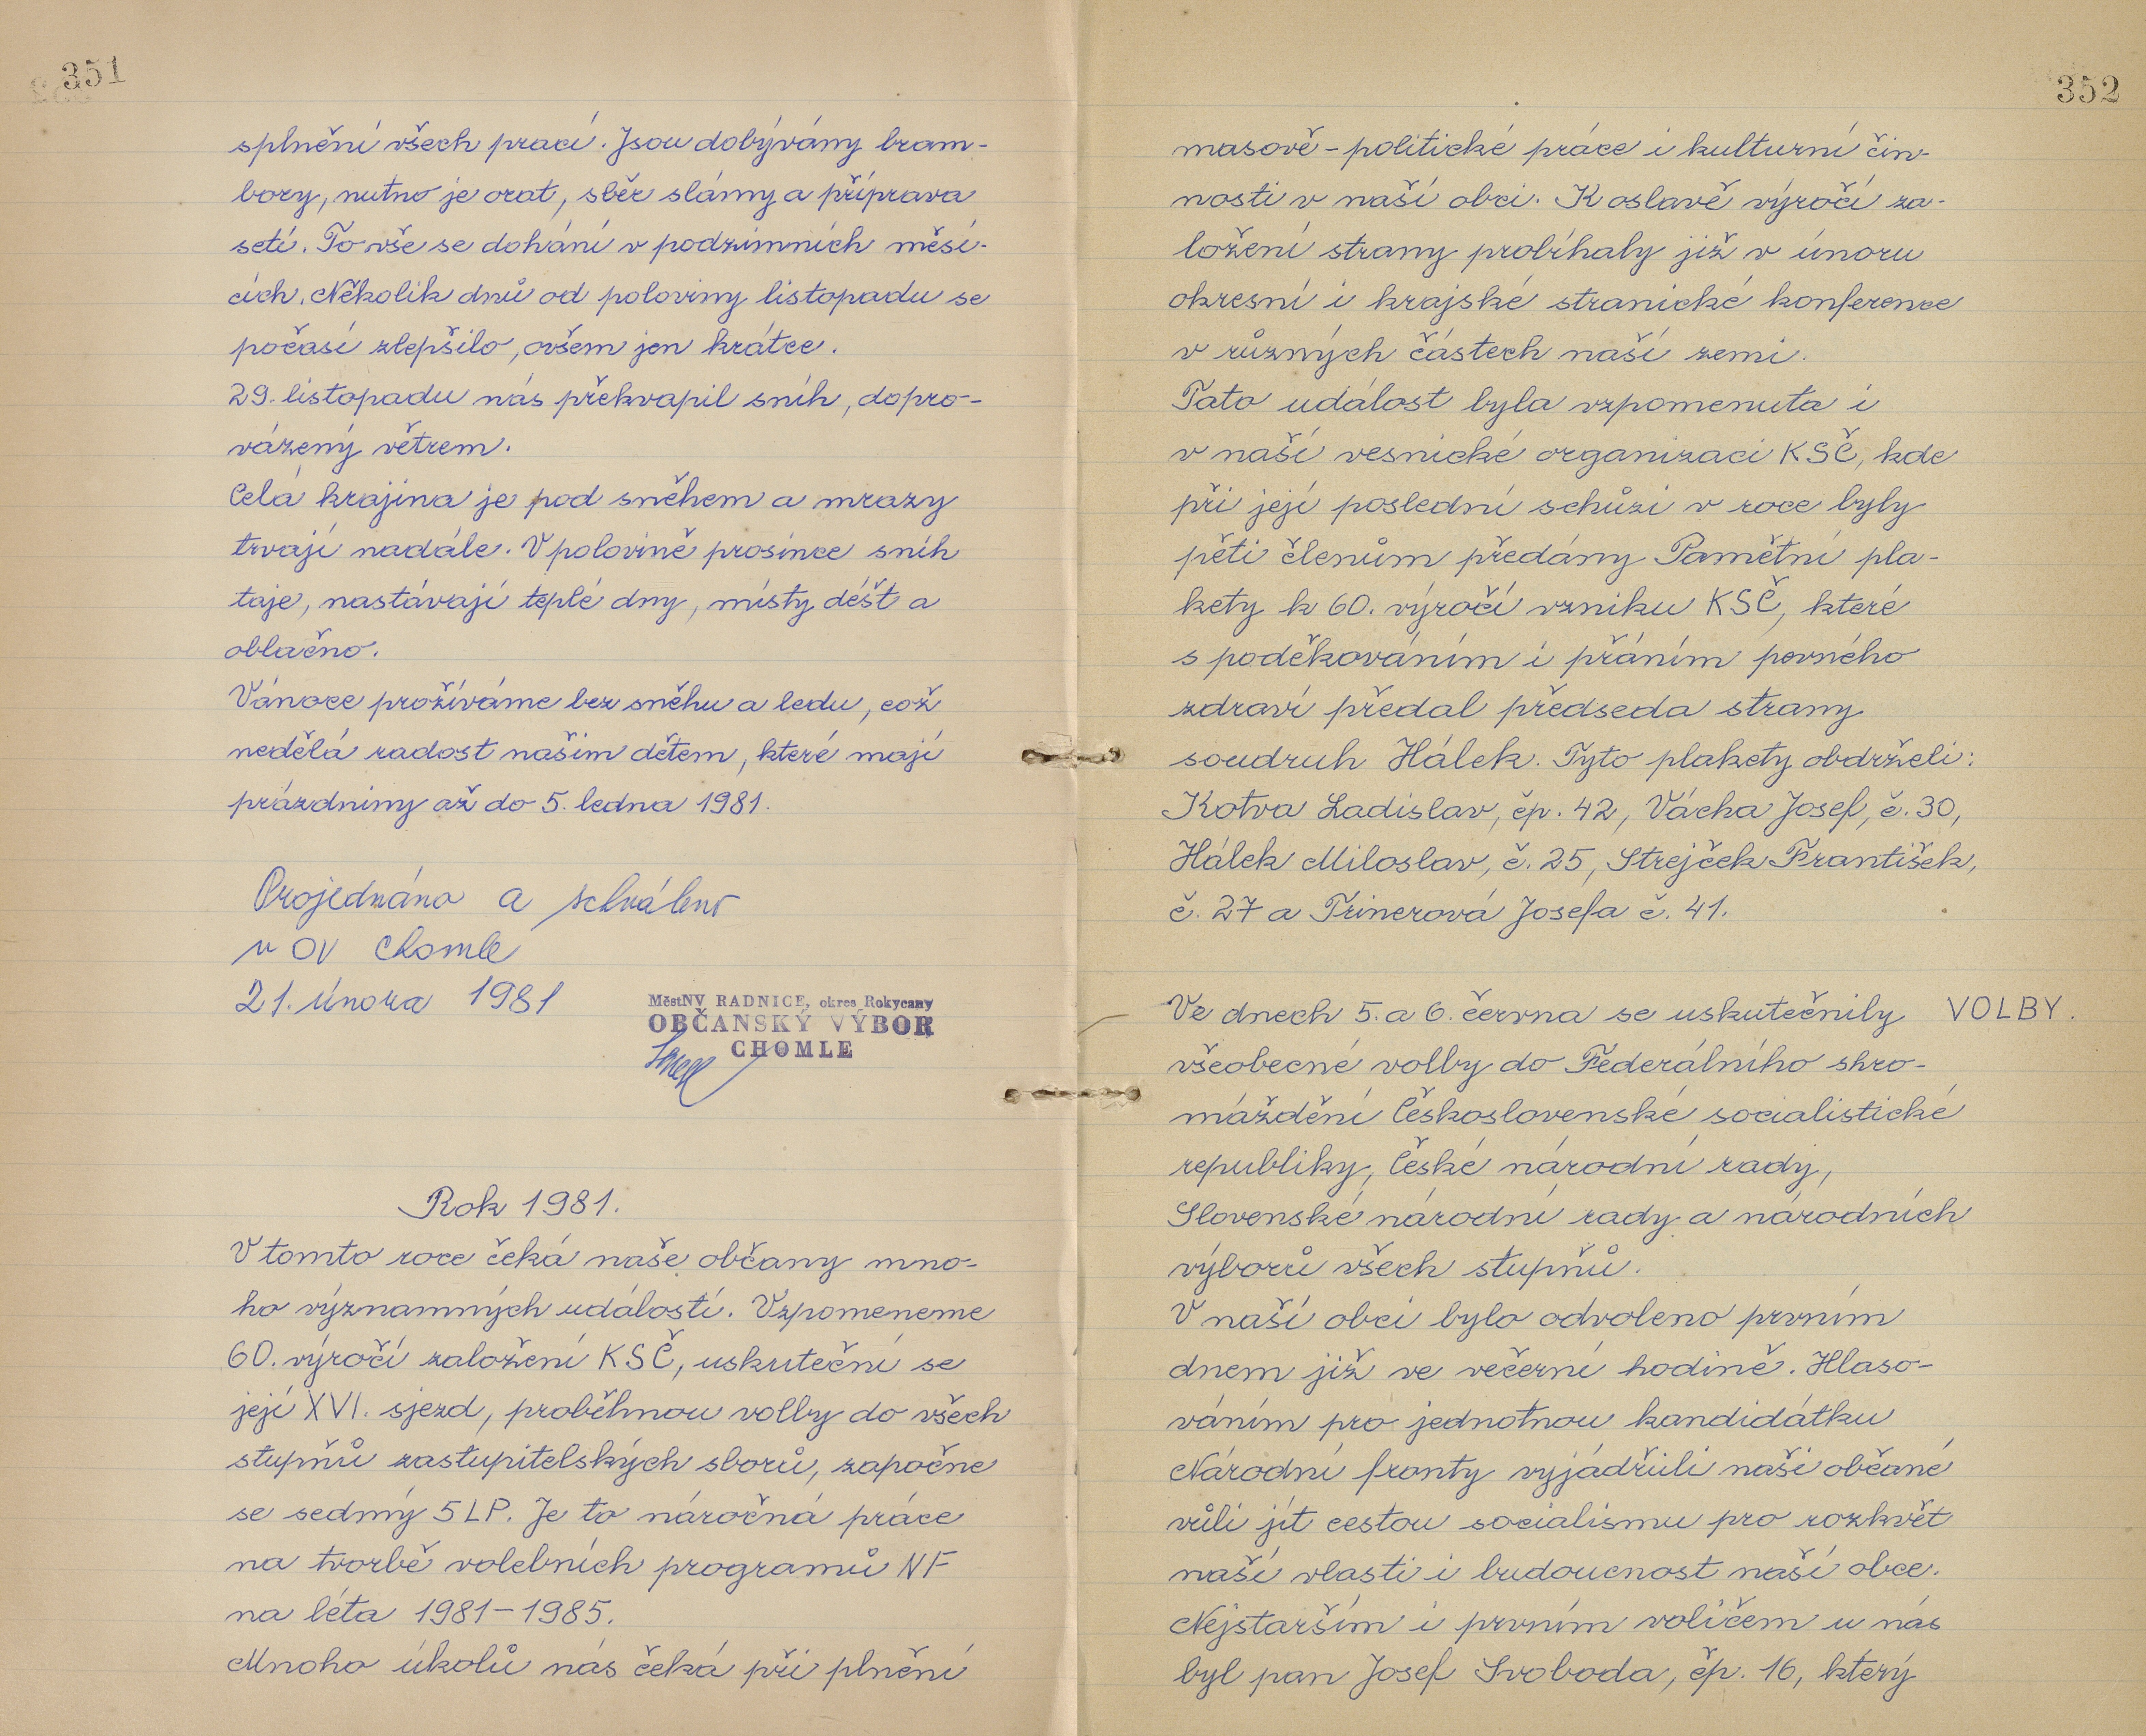 351
splnění všech prací. Jsou dobývány bram-
bory, nutno je orat, sběr slámy a příprava
setí. To vše se dohání v podzimních měsí-
cích. Několik dnů od poloviny listopadu se
počasí zlepšilo, ovšem jen krátce.
29. listopadu nás překvapil sníh, dopro-
vázený větrem.
Celá krajina je pod sněhem a mrazy
trvají nadále. V polovině prosince sníh
taje, nastávají teplé dny, místy déšť a
oblačno.
Vánoce prožíváme bez sněhu a ledu, což
nedělá radost našim dětem, které mají
prázdniny až do 5. ledna 1981.
Projednáno a schváleno
v OV Chomle
21. února 1981
MěstNV RADNICE, okres Rokycany
OBČANSKÝ VÝBOR
CHOMLE
Rok 1981.
V tomto roce čeká naše občany mno-
ho významných událostí. Vzpomeneme
60. výročí založení KSČ, uskuteční se
její XVI. sjezd, proběhnou volby do všech
stupňů zastupitelských sborů, započne
se sedmý 5LP. Je to náročná práce
na tvorbě volebních programů NF
na léta 1981-1985.
Mnoho úkolů nás čeká při plnění
352
masově-politické práce i kulturní čin-
nosti v naší obci. K oslavě výročí za-
ložení strany probíhaly již v únoru
okresní i krajské stranické konference
v různých částech naší zemi.
Tato událost byla vzpomenuta i
v naší vesnické organizaci KSČ, kde
při její poslední schůzi v roce byly
pěti členům předány Pamětní pla-
kety k 60. výročí vzniku KSČ, které
s poděkováním i přáním pevného
zdraví předal předseda strany
soudruh Hálek. Tyto plakety obdrželi:
Kotva Ladislav, čp. 42, Vácha Josef, č. 30,
Hálek Miloslav, č. 25, Strejček František,
č. 27 a Trinerová Josefa č. 41.
Ve dnech 5. a 6. června se uskutečnily VOLBY.
všeobecné volby do Federálního shro-
máždění Československé socialistické
republiky, České národní rady,
Slovenské národní rady a národních
výborů všech stupňů.
V naší obci bylo odvoleno prvním
dnem již ve večerní hodině. Hlaso-
váním pro jednotnou kandidátku
Národní fronty vyjádřili naši občané
vůli jít cestou socialismu pro rozkvět
naší vlasti i budoucnost naší obce.
Nejstarším i prvním voličem u nás
byl pan Josef Svoboda, čp. 16, který